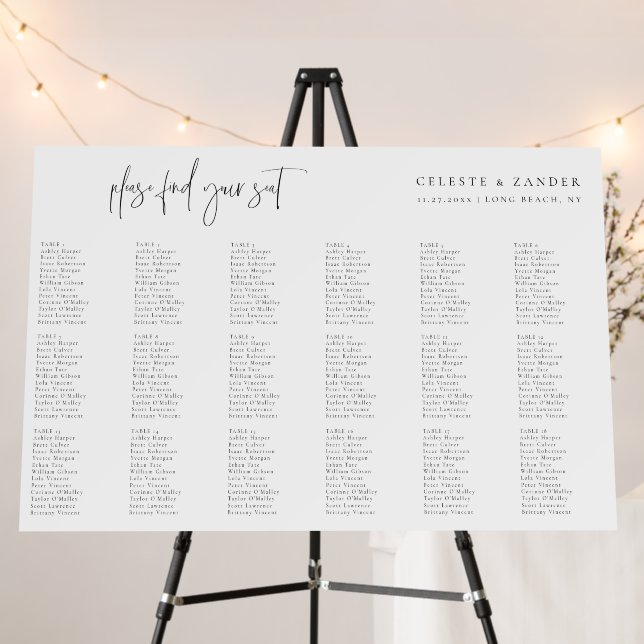 please find your seat
CELESTE & ZANDER
11.27.20XX | LONG BEACH, NY
TABLE 1
Ashley Harper
Brett Culver
Isaac Robertson
Yvette Morgan
Ethan Tate
William Gibson
Lola Vincent
Peter Vincent
Corinne O'Malley
Taylor O'Malley
Scott Lawrence
Brittany Vincent
TABLE 2
Ashley Harper
Brett Culver
Isaac Robertson
Yvette Morgan
Ethan Tate
William Gibson
Lola Vincent
Peter Vincent
Corinne O'Malley
Taylor O'Malley
Scott Lawrence
Brittany Vincent
TABLE 3
Ashley Harper
Brett Culver
Isaac Robertson
Yvette Morgan
Ethan Tate
William Gibson
Lola Vincent
Peter Vincent
Corinne O'Malley
Taylor O'Malley
Scott Lawrence
Brittany Vincent
TABLE 4
Ashley Harper
Brett Culver
Isaac Robertson
Yvette Morgan
Ethan Tate
William Gibson
Lola Vincent
Peter Vincent
Corinne O'Malley
Taylor O'Malley
Scott Lawrence
Brittany Vincent
TABLE 5
Ashley Harper
Brett Culver
Isaac Robertson
Yvette Morgan
Ethan Tate
William Gibson
Lola Vincent
Peter Vincent
Corinne O'Malley
Taylor O'Malley
Scott Lawrence
Brittany Vincent
TABLE 6
Ashley Harper
Brett Culver
Isaac Robertson
Yvette Morgan
Ethan Tate
William Gibson
Lola Vincent
Peter Vincent
Corinne O'Malley
Taylor O'Malley
Scott Lawrence
Brittany Vincent
TABLE 7
Ashley Harper
Brett Culver
Isaac Robertson
Yvette Morgan
Ethan Tate
William Gibson
Lola Vincent
Peter Vincent
Corinne O'Malley
Taylor O'Malley
Scott Lawrence
Brittany Vincent
TABLE 8
Ashley Harper
Brett Culver
Isaac Robertson
Yvette Morgan
Ethan Tate
William Gibson
Lola Vincent
Peter Vincent
Corinne O'Malley
Taylor O'Malley
Scott Lawrence
Brittany Vincent
TABLE 9
Ashley Harper
Brett Culver
Isaac Robertson
Yvette Morgan
Ethan Tate
William Gibson
Lola Vincent
Peter Vincent
Corinne O'Malley
Taylor O'Malley
Scott Lawrence
Brittany Vincent
TABLE 10
Ashley Harper
Brett Culver
Isaac Robertson
Yvette Morgan
Ethan Tate
William Gibson
Lola Vincent
Peter Vincent
Corinne O'Malley
Taylor O'Malley
Scott Lawrence
Brittany Vincent
TABLE 11
Ashley Harper
Brett Culver
Isaac Robertson
Yvette Morgan
Ethan Tate
William Gibson
Lola Vincent
Peter Vincent
Corinne O'Malley
Taylor O'Malley
Scott Lawrence
Brittany Vincent
TABLE 12
Ashley Harper
Brett Culver
Isaac Robertson
Yvette Morgan
Ethan Tate
William Gibson
Lola Vincent
Peter Vincent
Corinne O'Malley
Taylor O'Malley
Scott Lawrence
Brittany Vincent
TABLE 13
Ashley Harper
Brett Culver
Isaac Robertson
Yvette Morgan
Ethan Tate
William Gibson
Lola Vincent
Peter Vincent
Corinne O'Malley
Taylor O'Malley
Scott Lawrence
Brittany Vincent
TABLE 14
Ashley Harper
Brett Culver
Isaac Robertson
Yvette Morgan
Ethan Tate
William Gibson
Lola Vincent
Peter Vincent
Corinne O'Malley
Taylor O'Malley
Scott Lawrence
Brittany Vincent
TABLE 15
Ashley Harper
Brett Culver
Isaac Robertson
Yvette Morgan
Ethan Tate
William Gibson
Lola Vincent
Peter Vincent
Corinne O'Malley
Taylor O'Malley
Scott Lawrence
Brittany Vincent
TABLE 16
Ashley Harper
Brett Culver
Isaac Robertson
Yvette Morgan
Ethan Tate
William Gibson
Lola Vincent
Peter Vincent
Corinne O'Malley
Taylor O'Malley
Scott Lawrence
Brittany Vincent
TABLE 17
Ashley Harper
Brett Culver
Isaac Robertson
Yvette Morgan
Ethan Tate
William Gibson
Lola Vincent
Peter Vincent
Corinne O'Malley
Taylor O'Malley
Scott Lawrence
Brittany Vincent
TABLE 18
Ashley Harper
Brett Culver
Isaac Robertson
Yvette Morgan
Ethan Tate
William Gibson
Lola Vincent
Peter Vincent
Corinne O'Malley
Taylor O'Malley
Scott Lawrence
Brittany Vincent